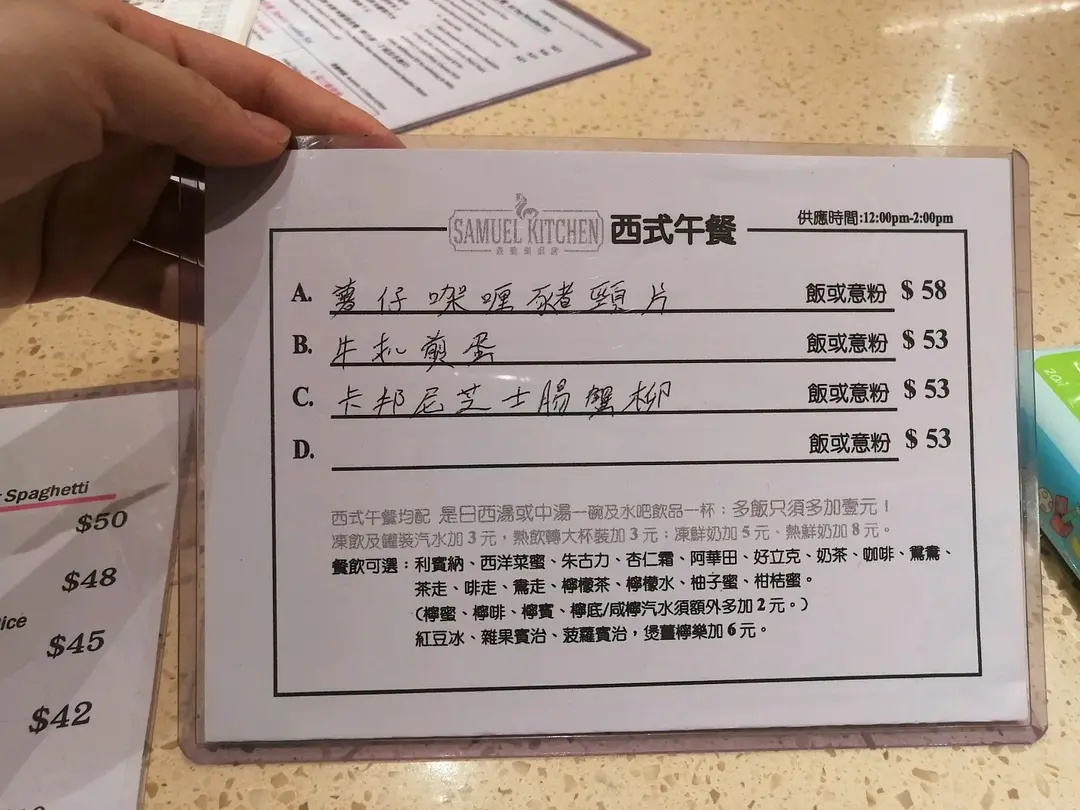 SAMUEL KITCHEN
西式午餐
供應時間:12:00pm-2:00pm
A. 薯仔咖喱豬頸片 飯或意粉 $ 58
B. 牛扒煎蛋 飯或意粉 $ 53
C. 卡邦尼芝士腸蟹柳 飯或意粉 $ 53
D. 飯或意粉 $ 53
西式午餐均配 是日西湯或中湯一碗及水吧飲品一杯；多飯只須多加壹元！
凍飲及罐裝汽水加 3 元，熱飲轉大杯裝加 3 元；凍鮮奶加 5 元、熱鮮奶加 8 元。
餐飲可選：利賓納、西洋菜蜜、朱古力、杏仁霜、阿華田、好立克、奶茶、咖啡、鴛鴦、
茶走、啡走、鴦走、檸檬茶、檸檬水、柚子蜜、柑桔蜜。
（檸蜜、檸啡、檸賓、檸底/咸檸汽水須額外多加 2 元。）
紅豆冰、雜果賓治、菠蘿賓治，煲薑檸樂加 6 元。
Spaghetti
$50
$48
ice
$45
$42